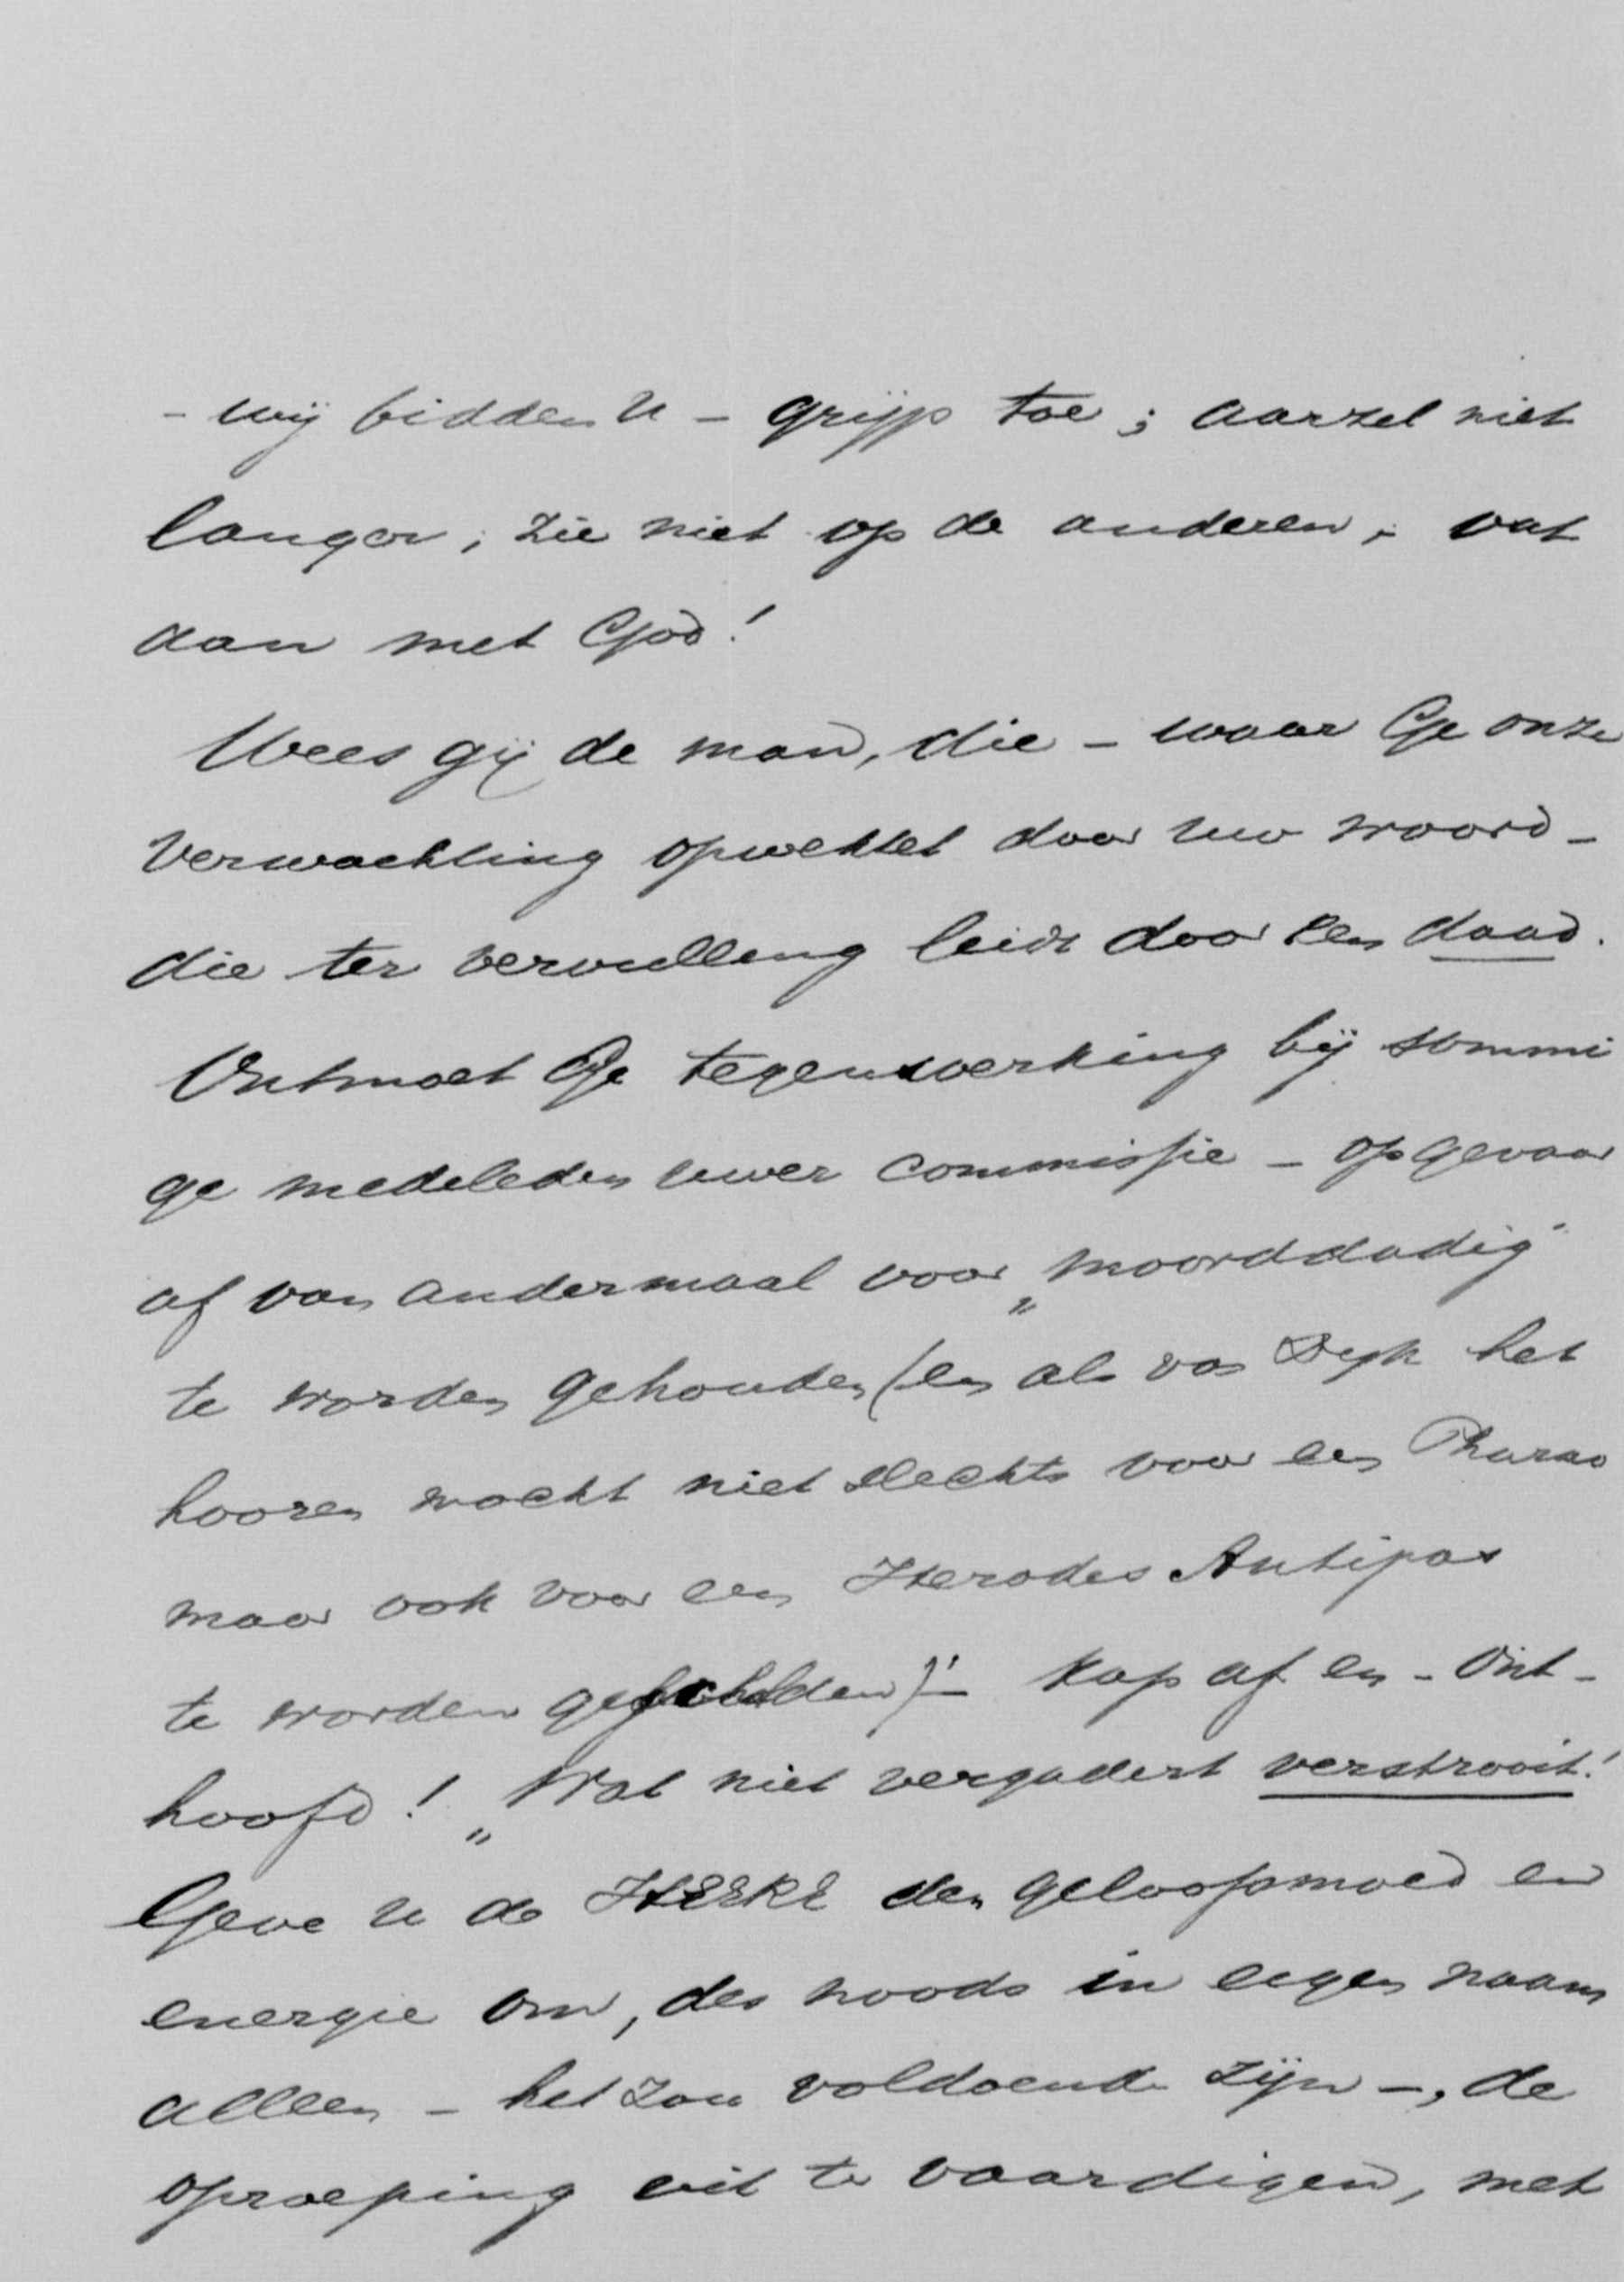 - wij bidden U - grijp toe; aarzel niet
langer; zie niet op de anderen; vat
aan met God!
Wees gij de man, die - waar Ge onze
verwachting opwektet door uw woord -
die ter vervulling leidt door een daad.
Ontmoet Ge tegenwerking bij sommi
ge medeleden uwer commissie - op gevaar
af van andermaal voor „moorddadig"
te worden gehouden (en als van Dijk het
hooren mocht niet slechts voor een Pharao
maar ook voor een Herodes Antipas
te worden gescholden)! - kap af en - ont-
hoofd! „Wat niet vergadert verstrooit!
Geve U de HEERE den geloofsmoed en
energie om, des noods in eigen naam
alleen - het zou voldoende zijn -, de
oproeping uit te vaardigen, met